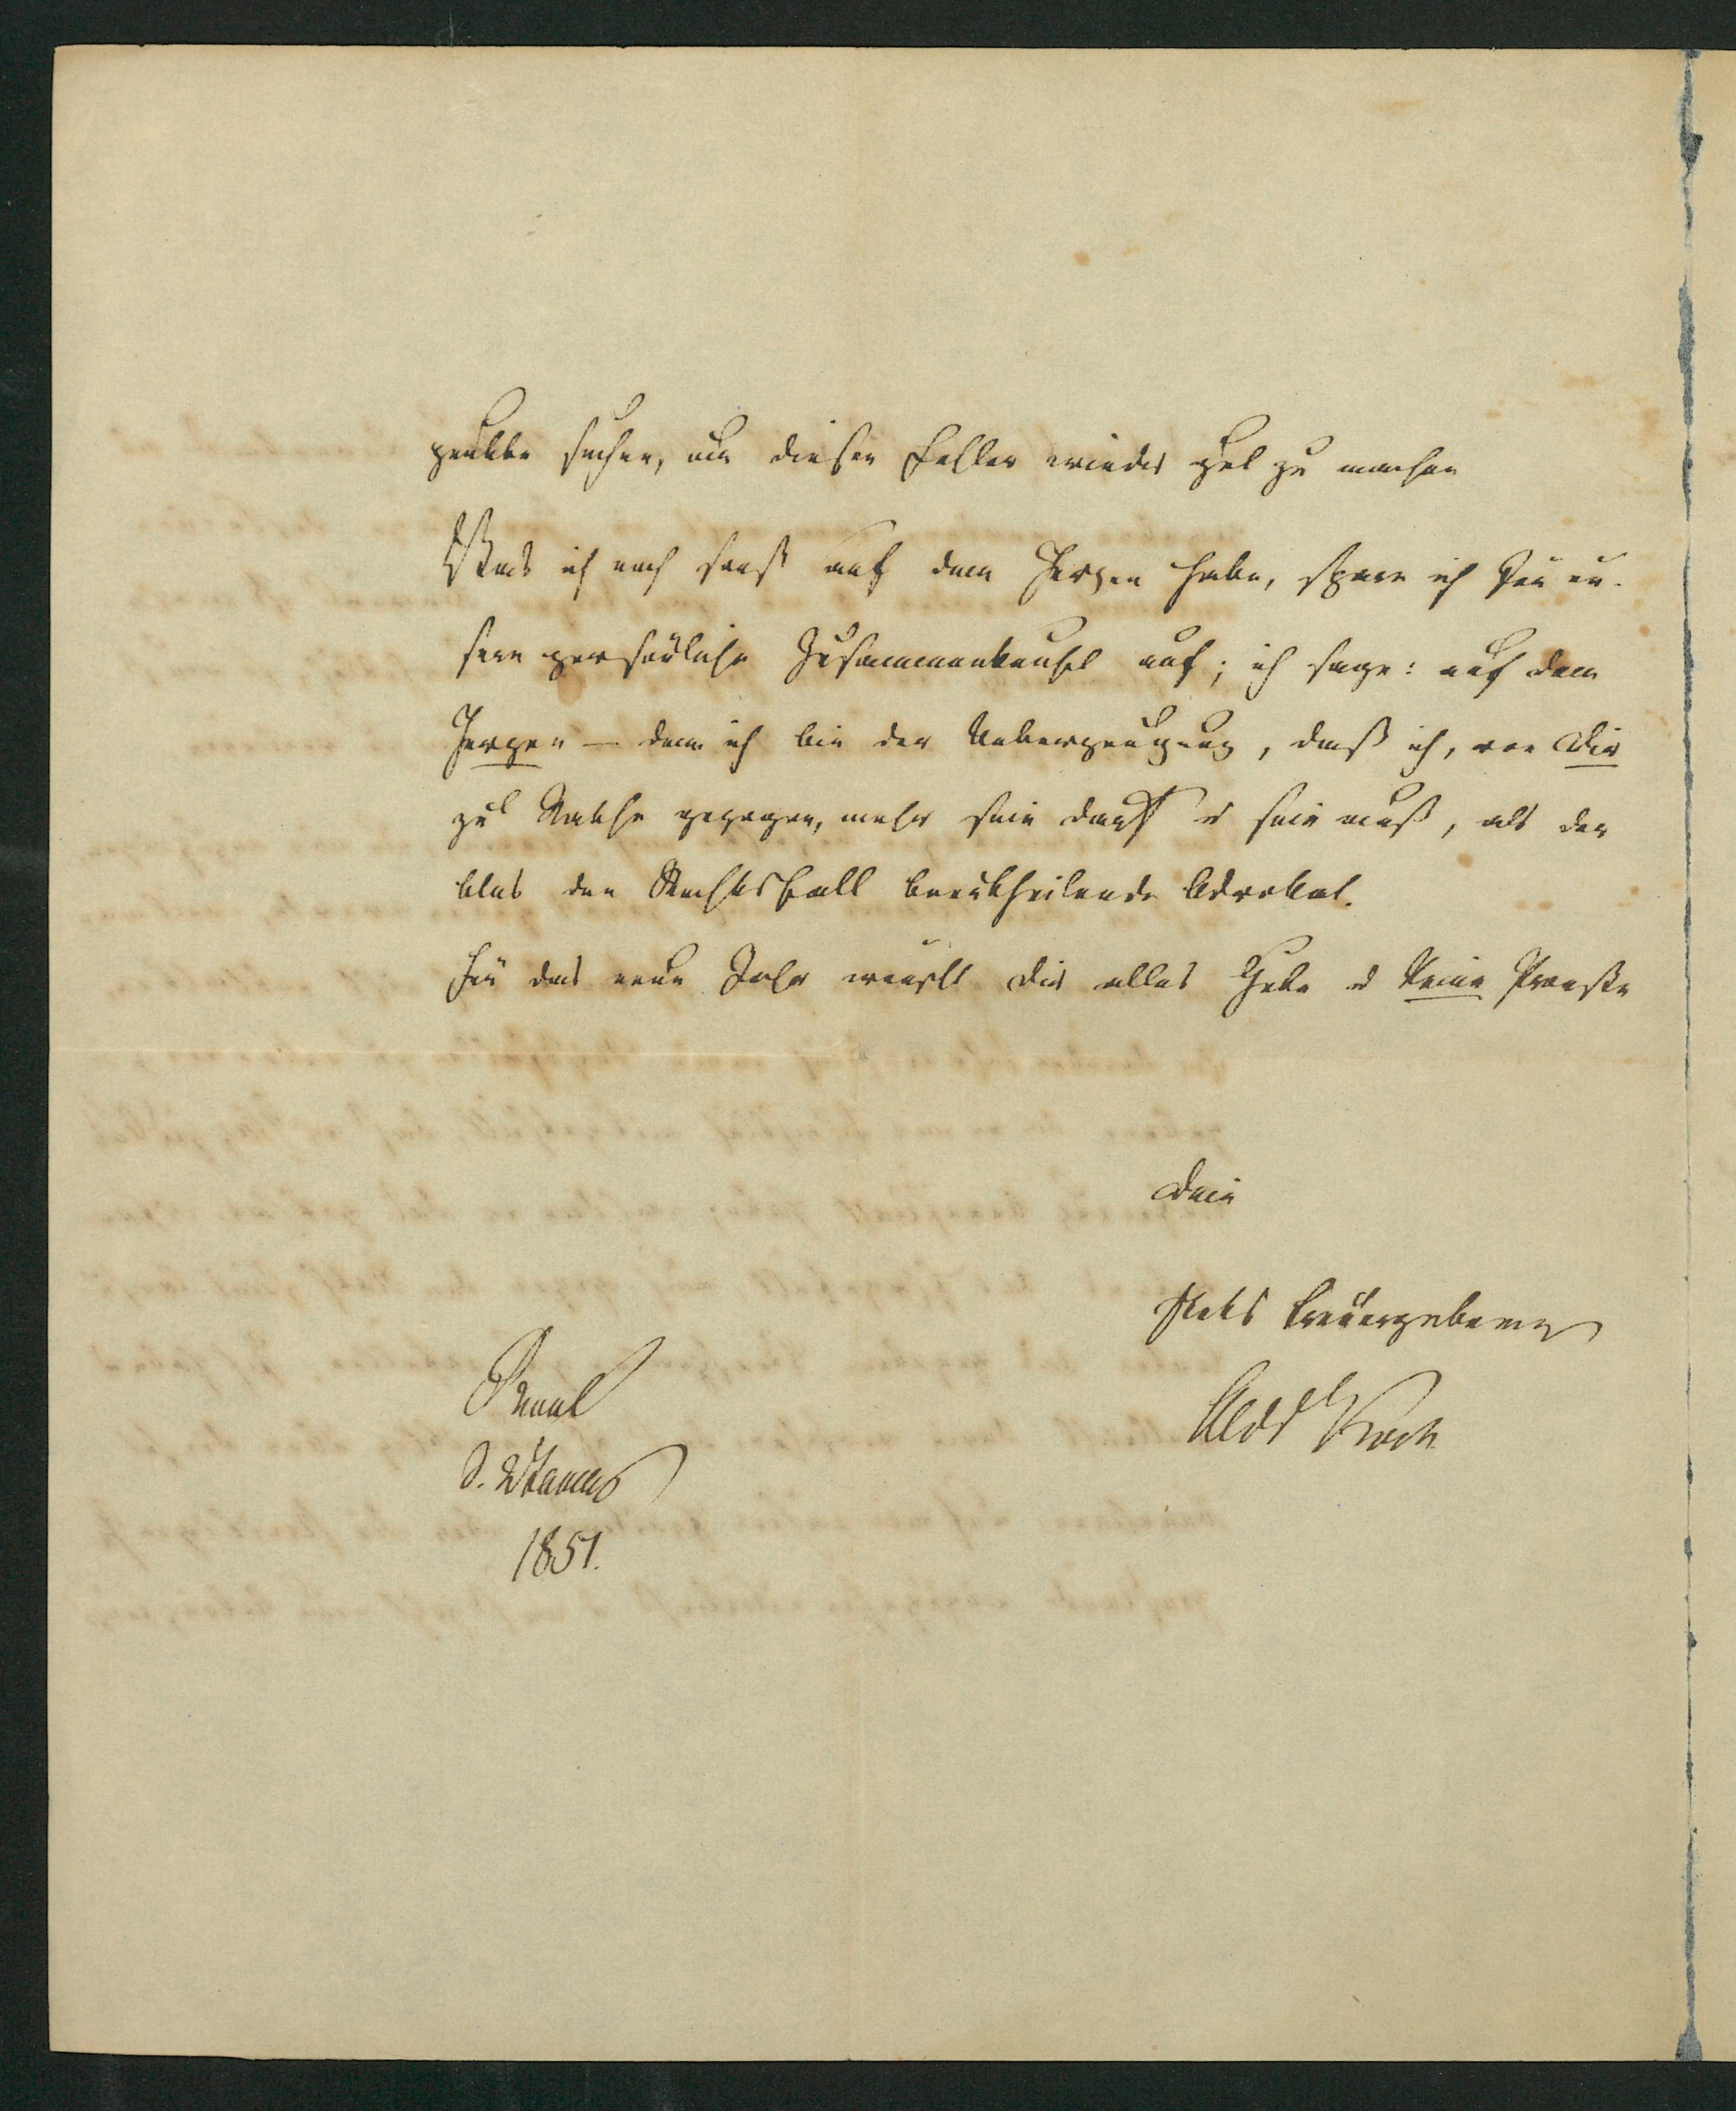 suchen, um diesen Fehler wieder gut zu machen
Was ich noch sonst auf dem Herzen habe, spare ich für un-
sere persönliche Zusammenkunft auf; ich sage: auf dem
Herzen — denn ich bin der Ueberzeugung, daß ich, von Dir
zu Rathe gezogen, mehr sein darf u sein muß, als der
blos den Rechtsfall beurtheilende Advokat.
Für das neue Jahr wünscht Dir alles Gute u keine Proceße
Dein
stets treuergebener
Koch
1851.